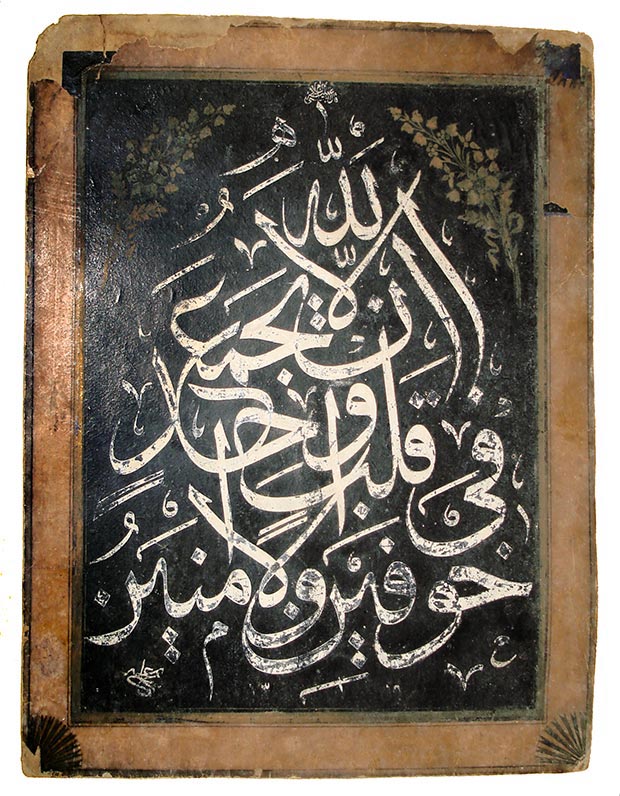 ان الله
لا يجمع
في قلب واحد
خوفين ولا امنين